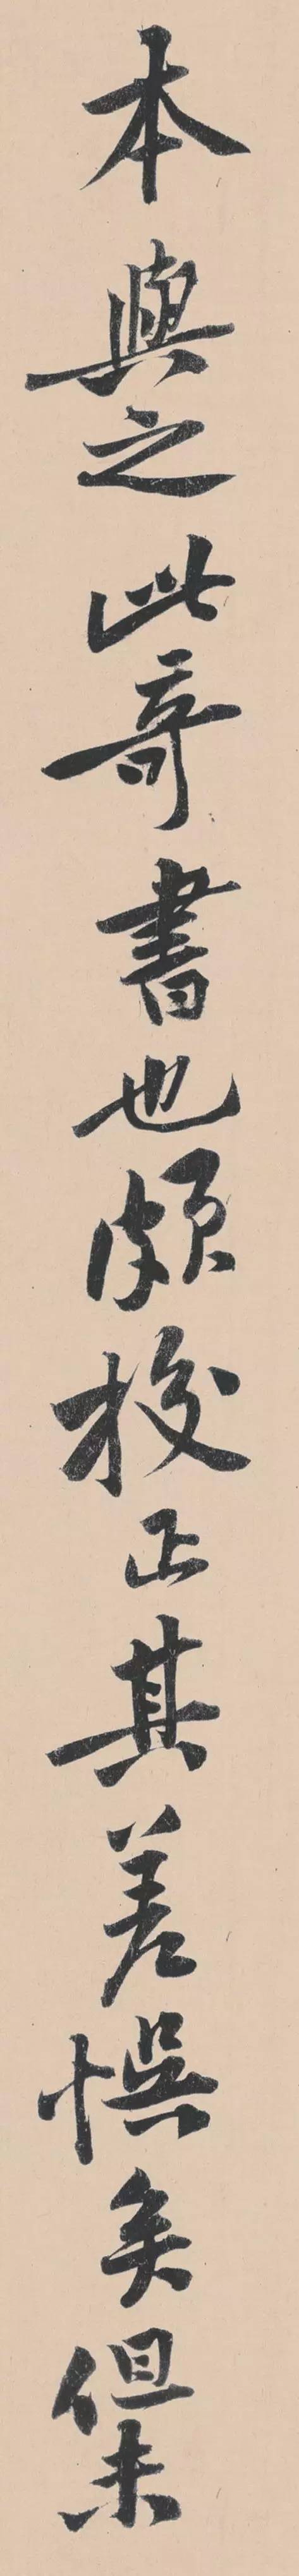 本與之此奇書也頗校正其差悮矣但未